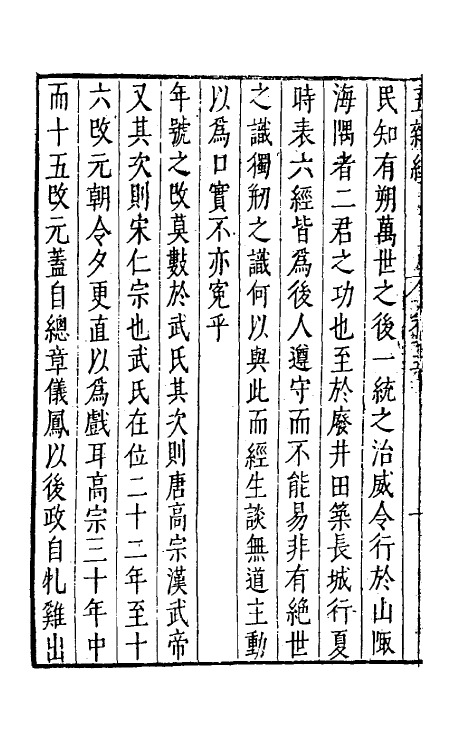 民知有朔萬世之後一統之治威令行於山陬
海隅者二君之功也至於廢井田築長城行夏
時表六經皆爲後人遵守而不能易非有絕世
之識獨刱之識何以與此而經生談無道主動
以爲口實不亦寃乎
年號之改莫數於武氏其次則唐高宗漢武帝
又其次則宋仁宗也武氏在位二十二年至十
六改元朝令夕更直以爲戲耳高宗三十年中
而十五改元蓋自總章儀鳳以後政自牝雞出